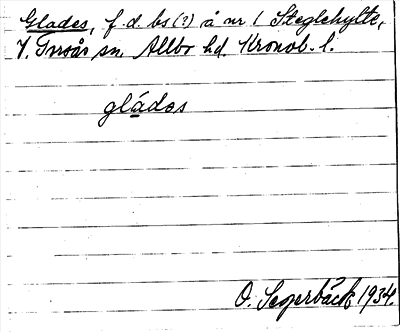 Glades, f.d. bs (?) å nr 1 Steglehylte,
V. Torsås sn. Allbo hd. Kronob. l.
gládas
O. Segerbäck 1934.